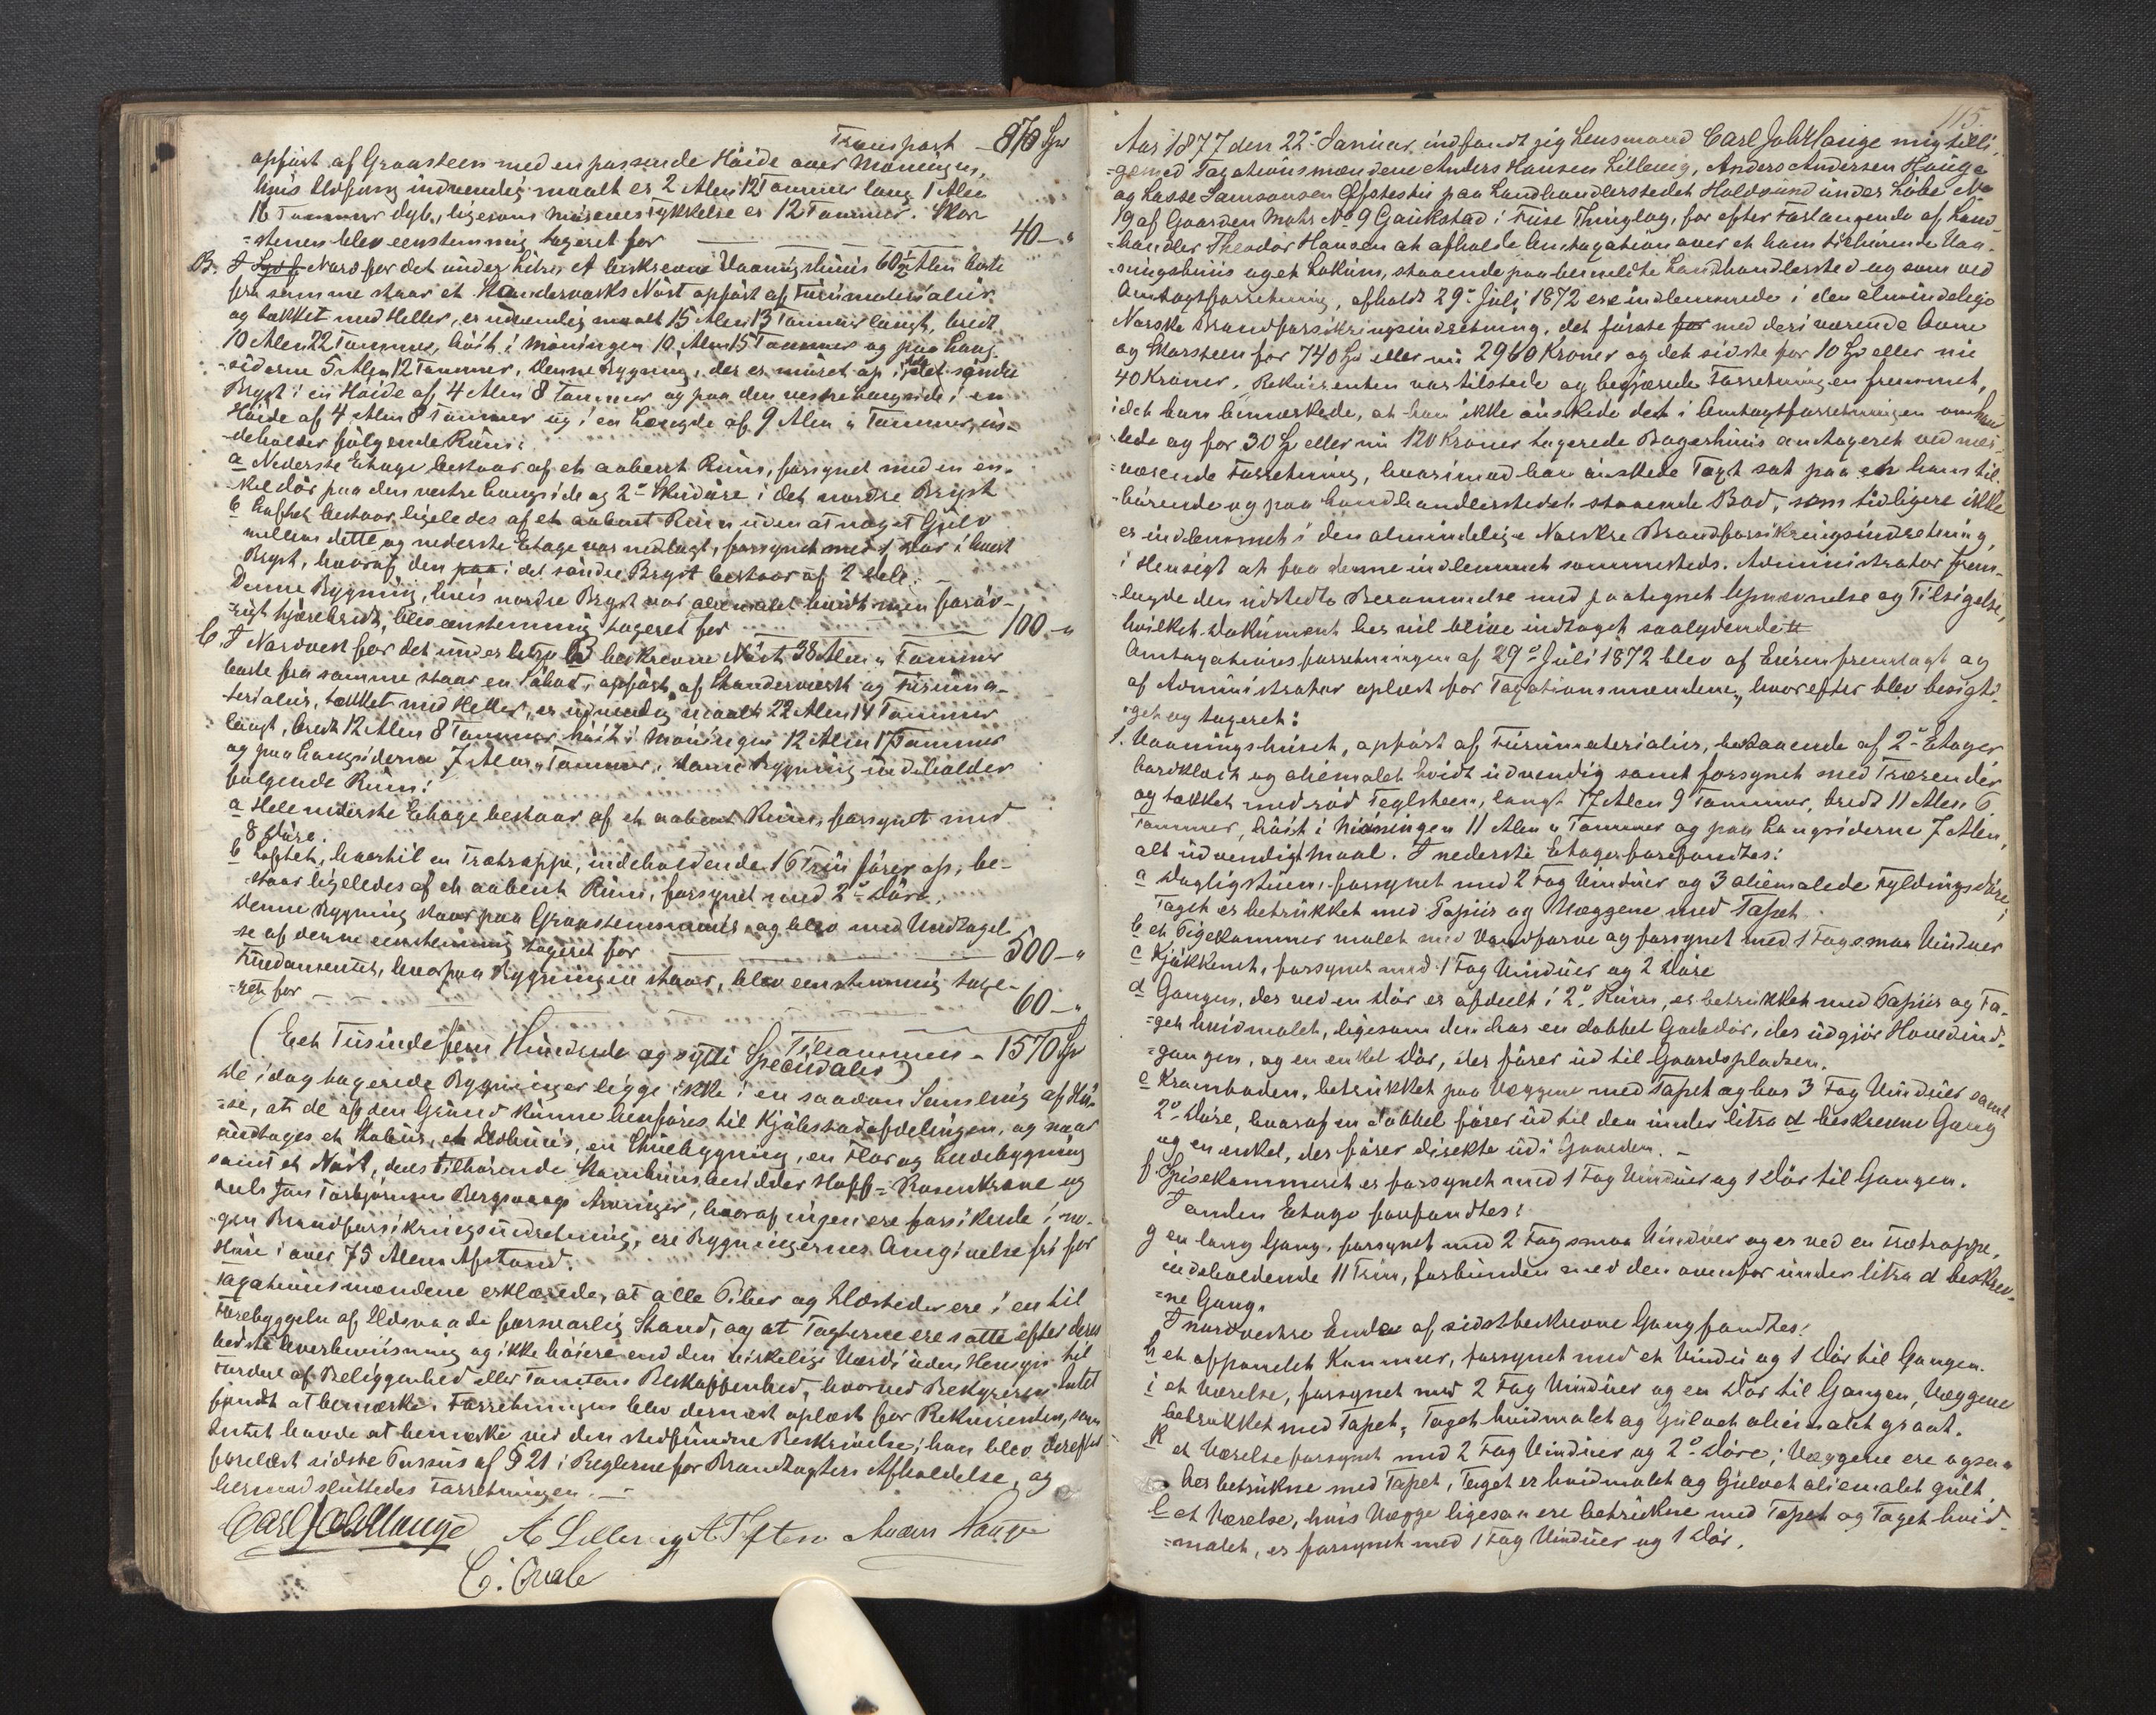 Transport - 870 Spd
opført af Graasteen med en passende Høide over Møningen,
hvis Ildfang indvendig maalt er 2 Alen 12 Tommer lang 1 Alen
16 Tommer dyb, ligesom Murenes Tykkelse er 12 Tommer. Skor
=stenen blev eenstemmig taxeret for 40 - "
B. I Nord for det under Litra A beskrevne Vaaningshuus 60½ Alen borte
fra samme staar et Standerværks Nøst opført af Furumaterialier
og tækket med Heller, er udvendig maalt 15 Alen 13 Tommer langt, bredt
10 Alen 22 Tommer, høit i Møningen 10 Alen 15 Tommer og paa Lang-
siderne 5 Alen 12 Tommer. Denne Bygning, der er muret op i det søndre
Bryst i en Høide af 4 Alen 8 Tommer og paa den vestre Langside i en
Høide af 4 Alen 8 Tommer og i en Længde af 9 Alen " Tommer, in-
-deholder følgende Rum:
a Nederste Etage bestaar af et aabent Rum, forsynet med en en-
kel dør paa den vestre Langside og 2de Skuddøre i det nordre Bryst
b Loftet bestaar ligeledes af et aabent Rum uden at noget Gulv
mellem dette og nederste Etage var nedlagt, forsynet med 1 Dør i hvert
Bryst, hvoraf den paa i det søndre Bryst bestaar af 2 Dele. -
Denne Bygning, hvis nordre Bryst var oliemalet hvidt men forøv-
-rigt tjærebredt, blev eenstemmig taxeret for 100 - "
C. I Nordvest for det under litra B beskrevne Nøst 38 Alen " Tommer
borte fra samme staar en Søbod, opført af Standerværk og Furuma-
terialier, tækket med Heller, er udvendig maalt 22 Alen 14 Tommer
langt, bredt 12 Alen 8 Tommer høit i Møningen 12 Alen 17 Tommer
og paa Langsiderne 7 Alen " Tommer. Denne Bygning indeholder
følgende Rum:
a Hele nederste Etage bestaar af et aabent Rum, forsynet med
8 Døre.
b Loftet, hvortil en Trætrappe, indeholdende 16 Trin fører op, be-
staar ligeledes af et aabent Rum, forsynet med 2de Døre.
Denne Bygning staar paa Graasteensmuur og blev med Undtagel-
se af denne eenstemmig taxeret for 500 - "
Fundamentet, hvorpaa Bygningen staar, blev eenstemmig taxe-
=ret for 60 - "
Tilsammen - 1570 Spd
(Eet Tusinde fem Hundrede og sytti Speciedaler)
De i dag taxerede Bygninger ligge ikke i en saadan Samling af Hu-
=se, at de af den Grund kunne henføres til Kjøbstadafdelingen, og naar
undtages et Stabur, et Ildhuus, en Stuebygning, en Flor og Ladebygning
samt et Nøst, dels tilhørende Stamhuusbesidder Hoff=Rosenkrone og
dels Jens Torbjørnsen Bergsvaags Arvinger, hvoraf ingen ere forsikrede i no-
gen Brandforsikringsindretning, ere Bygningernes Omgivelse fri for
Huse i over 75 Alens Afstand.
Taxationsmændene erklærede, at alle Piber og Ildsteder ere i en til
Forebyggelse af Ildsvaade forsvarlig Stand, og at Taxterne ere satte efter deres
bedste Overbeviisning og ikke høiere end den virkelige Værdi uden Hensyn til
Fordeel af Beliggenhed eller Tomtens Beskaffenhed, hvorved Bestyreren Intet
fandt at bemærke. Forretningen blev dernæst oplæst for Rekvirenten, som
Intet havde at bemærke ved den stedfundne Beskrivelse; han blev derefter
forelæst sidste Passus af § 21 i Reglerne for Brandtaxters Afholdelse, og
hermed sluttedes Forretningen. -
Carl Joh Hauge A Lillevig A. Anders Hauge
C. Qvale
115.
Aar 1877 den 22de Januar indfandt sig Lensmand Carl Joh Hauge mig tilli-
=gemed Taxationsmændene Anders Hansen Lillevig, Anders Andersen Hauge
og Lasse Samsonsen paa Landhandlerstedet Holdsund under Løbe No
19 af Gaarden Matr No 9 Gaukstad i Fuse Thinglag, for efter Forlangende af Land-
=handler Theodor Hansen at afholde Omtaxation over et ham tilhørende Vaa-
=ningshuus og et Lokum, staaende paa bemeldte Landhandlersted og som ved
Omtaxtforretning, afholdt 29de Juli 1872 ere indlemmede i den almindelige
Norske Brandforsikringsindretning, det første for med deri værende Ovne
og Skorsteen for 740 Spd eller nu 2960 Kroner og det sidste for 10 Spd eller nu
40 Kroner. Rekvirenten var tilstede og begjærede Forretningen fremmet,
idet han bemærkede, at han ikke ønskede det i Omtaxtforretningen omhand-
lede og for 30 Spd eller nu 120 Kroner taxerede Bagerhuus omtaxeret ved nær-
=værende Forretning, hvorimod han ønskede Taxt sat paa et ham til-
=hørende og paa Landhandlerstedet staaende Bod, som tidligere ikke
er indlemmet i den almindelige Norske Brandforsikringsindretning,
i Hensigt at faa denne indlemmet sammesteds. Administrator frem-
=lagde den udstedte Berammelse med paategnet Opnævnelse og Tilsigelse,
hvilket Dokument her vil blive indtaget saalydende #
Omtaxationsforretningen af 29de Juli 1872 blev af Eieren fremlagt og
af Administrator oplæst for Taxationsmændene, hvorefter blev besigti-
=get og taxeret:
1. Vaaningshuset, opført af Furumaterialier, bestaaende af 2de Etager
bordklædt og oliemalet hvidt udvendig samt forsynet med Trærender
og tækket med rød Teglsteen, langt 17 Alen 9 Tommer, bredt 11 Alen 6
Tommer, høit i Møningen 11 Alen " Tommer og paa Langsiderne 7 Alen,
alt udvendigt Maal. I nederste Etage forefandtes:
a Dagligstuen, forsynet med 2 Fag Vinduer og 3 oliemalede Fyldingsdøre;
Taget er betrukket med Papiir og Væggene med Tapet.
b et Pigekammer malet med Vandfarve og forsynet med 1 Fag smaa Vinduer
c Kjøkkenet, forsynet med 1 Fag Vinduer og 2 Døre
d Gangen, der ved en Dør er afdeelt i 2de Rum, er betrukket med Papiir og Ta-
=get hvidmalet, ligesom den har en dobbelt Gadedør, der udgjør Hovedind-
=gangen, og en enkel Dør, der fører ud til Gaardspladsen.
e Kramboden, betrukket paa Væggene med Tapet og har 3 Fag Vinduer samt
2de Døre, hvoraf en dobbel fører ud til den under litra d beskrevne Gang
og en enkel, der fører direkte ud i Gaarden. -
f Spisekammeret er forsynet med 1 Fag Vinduer og 1 Dør til Gangen.
I anden Etage forefandtes:
g en lang Gang, forsynet med 2 Fag smaa Vinduer og er ved en Trætrappe,
indeholdende 11 Trin, forbunden med den ovenfor under litra d beskrev-
=ne Gang.
I nordvestre Ende af sidstbeskrevne Gang fandtes:
h et oppanelet Kammer, forsynet med et Vindu og 1 Dør til Gangen.
i et Værelse, forsynet med 2 Fag Vinduer og en Dør til Gangen, Væggene
betrukket med Tapet, Taget hvidmalet og Gulvet oliemalet graat.
k et Værelse forsynet med 2 Fag Vinduer og 2de Døre; Væggene ere ogsaa
her betrukne med Tapet, Taget er hvidmalet og Gulvet oliemalet gult.
l et Værelse, hvis Vægge ligesaa ere betrukne med Tapet og Taget hvid-
=malet, er forsynet med 1 Fag Vinduer og 1 Dør.